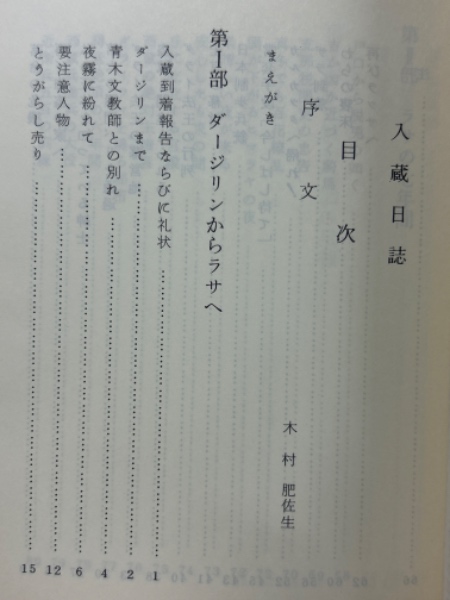 入蔵日誌
目次
序文
木村肥佐生
まえがき
第Ⅰ部 ダージリンからラサへ
入蔵到着報告ならびに礼状 1
ダージリンまで 2
青木文教師との別れ 4
夜霧に紛れて 6
要注意人物 12
とうがらし売り 15